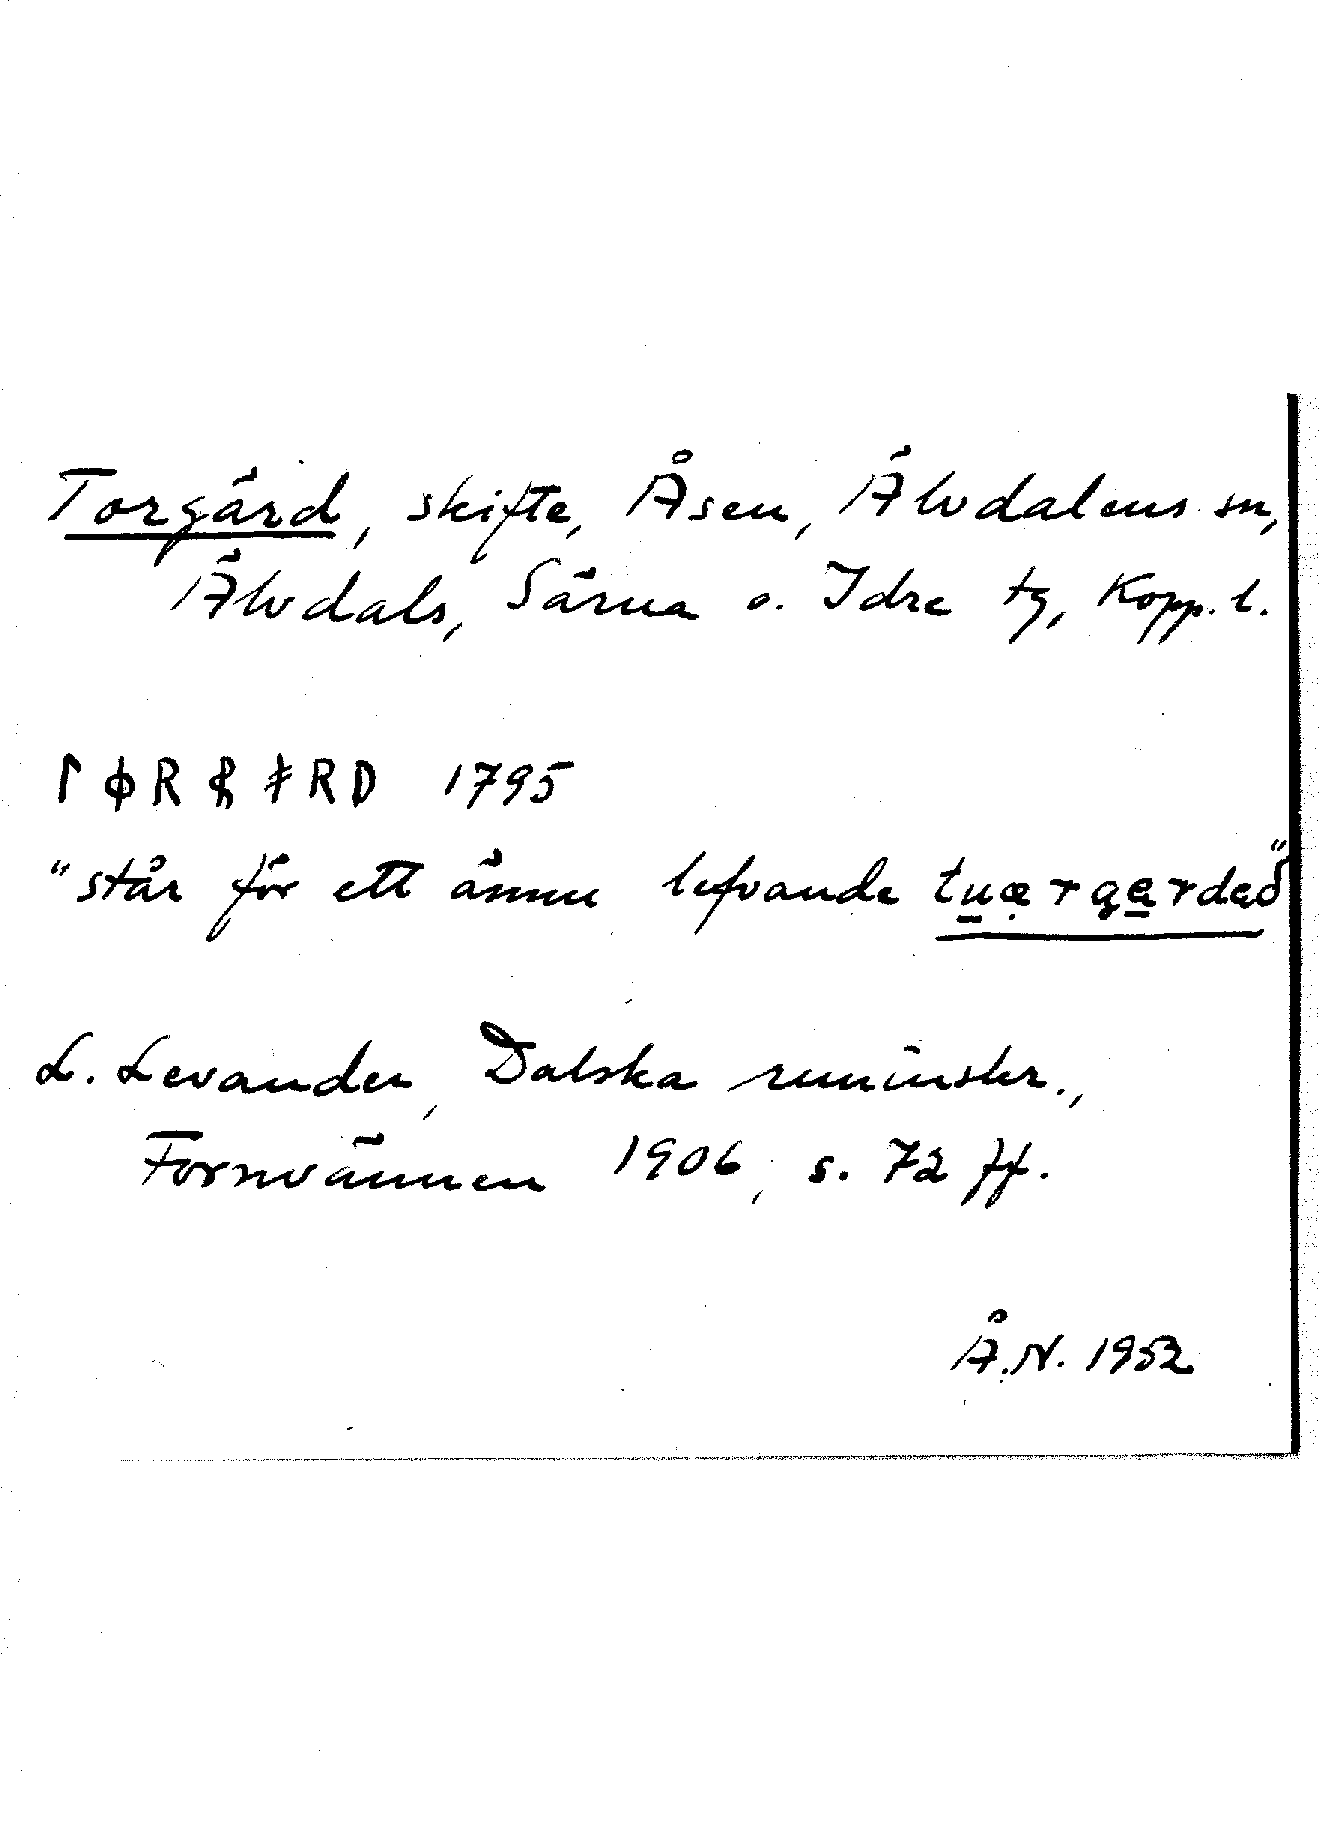 Torgärd, skifte, Åsen, Älvdalens sn,
Älvdals, Särna o. Idre tg, Kopp. l.
ᛚ ᛰ R ᛧ ᚯ R D 1795
"står för ett ännu lefvande tuærgærdeð"
L. Levander, Dalska runinskr.,
Fornvännen 1906, s. 72 ff.
Å.N. 1952